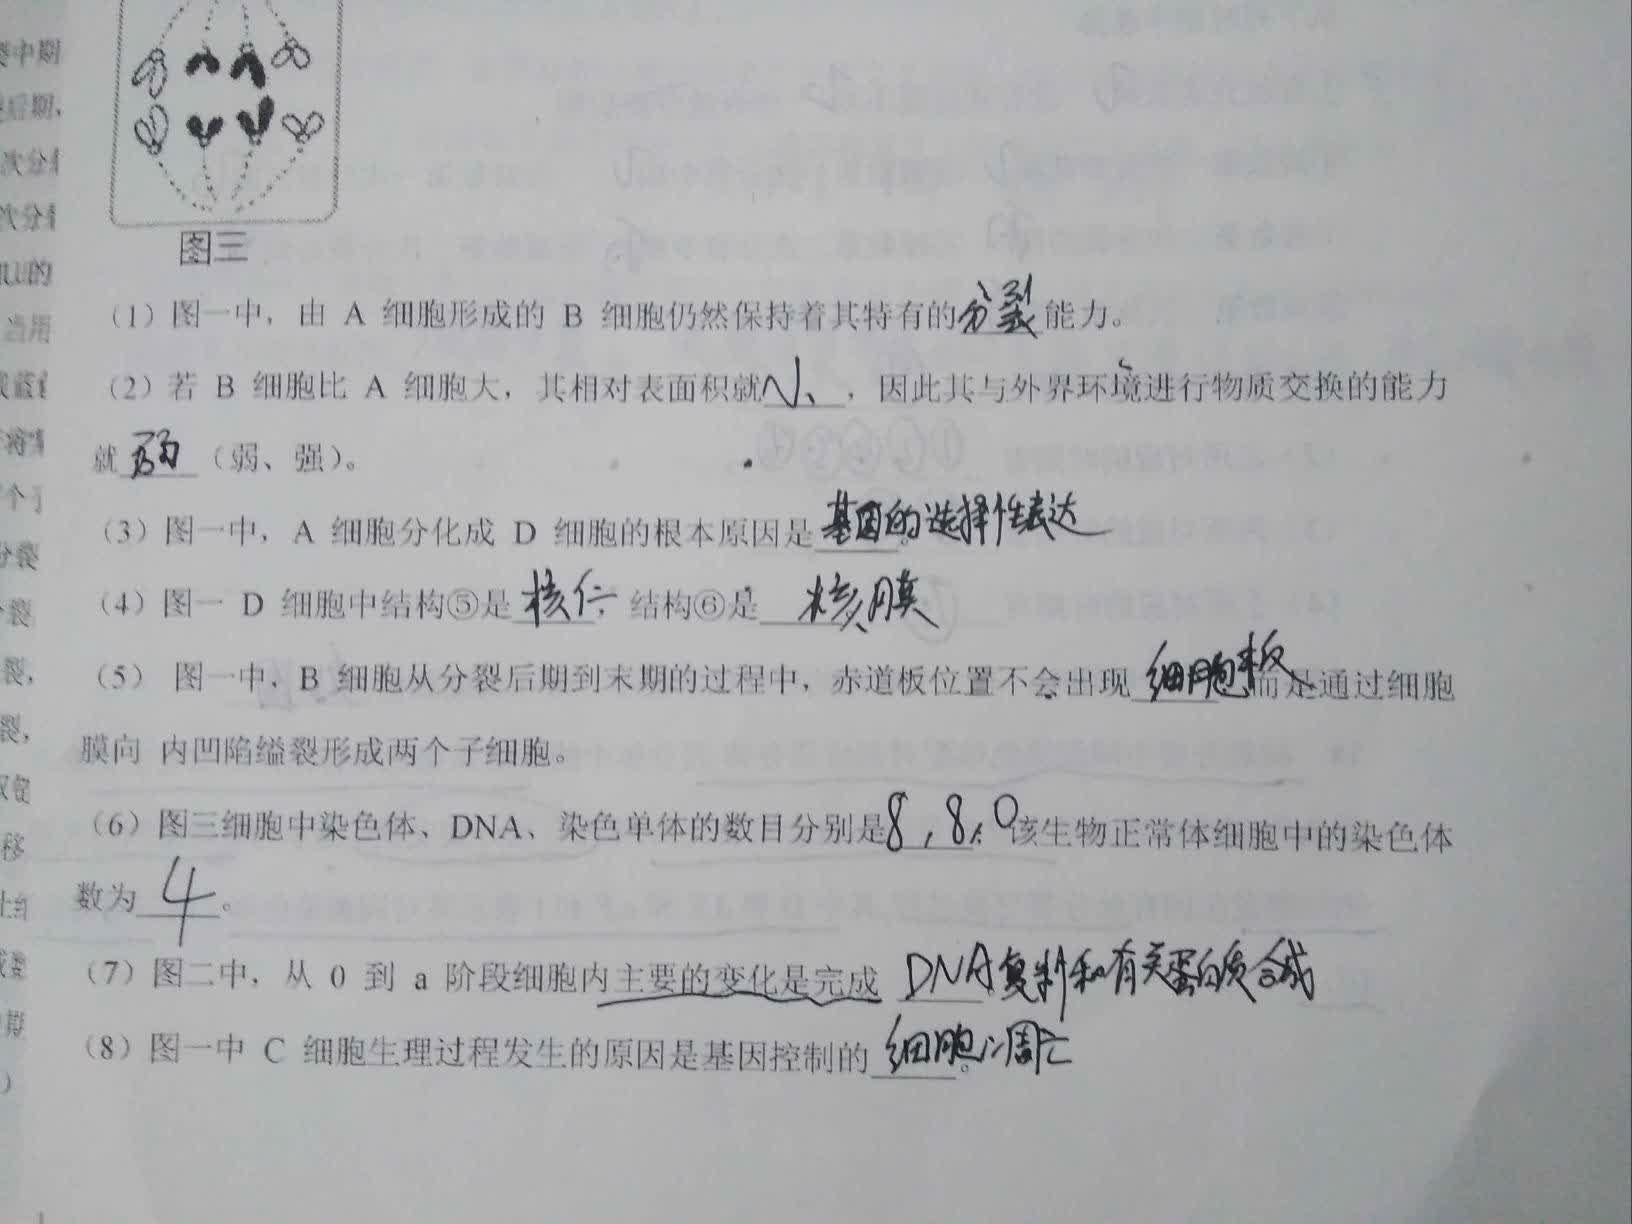 图三
(1)图一中，由 A 细胞形成的 B 细胞仍然保持着其特有的分裂能力。
(2)若 B 细胞比 A 细胞大，其相对表面积就小，因此其与外界环境进行物质交换的能力
就弱（弱、强）。
(3)图一中，A 细胞分化成 D 细胞的根本原因是基因的选择性表达。
(4)图一 D 细胞中结构⑤是核仁，结构⑥是核膜
(5) 图一中，B 细胞从分裂后期到末期的过程中，赤道板位置不会出现细胞板而是通过细胞
膜向 内凹陷缢裂形成两个子细胞。
(6)图三细胞中染色体、DNA、染色单体的数目分别是8,8,0该生物正常体细胞中的染色体
数为4。
(7)图二中，从 0 到 a 阶段细胞内主要的变化是完成 DNA复制和有关蛋白质合成
(8)图一中 C 细胞生理过程发生的原因是基因控制的细胞凋亡。